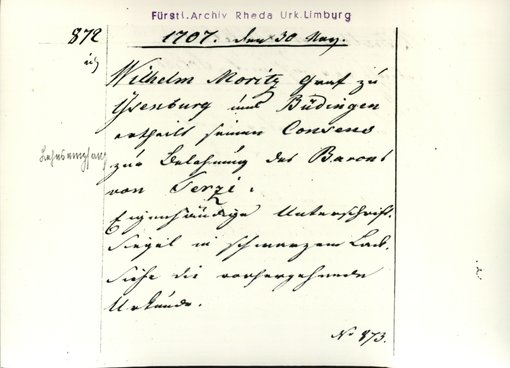 Fürstl. Archiv Rheda Urk. Limburg
872
1707. den 30 Nov.
Wilhelm Moritz Graf zu
Ysenburg und Büdingen
ertheilt seinen Consens
Lehnsempfang
zur Belehnung des Barons
von Terzi.
Eigenhändige Unterschrift.
Siegel in schwarzem Lack.
Siehe die vorhergehende
Urkunde.
No 873.